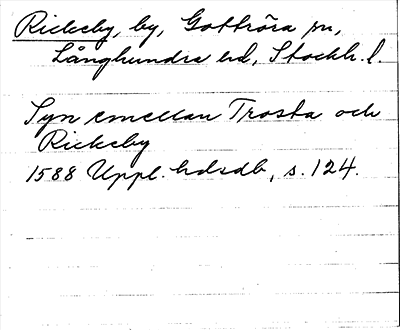 Rickeby, by, Gottröra sn,
Långhundra hd, Stockh. l.
Syn emellan Trosta och
Rickeby
1588 Uppl. hdsdb, s. 124.